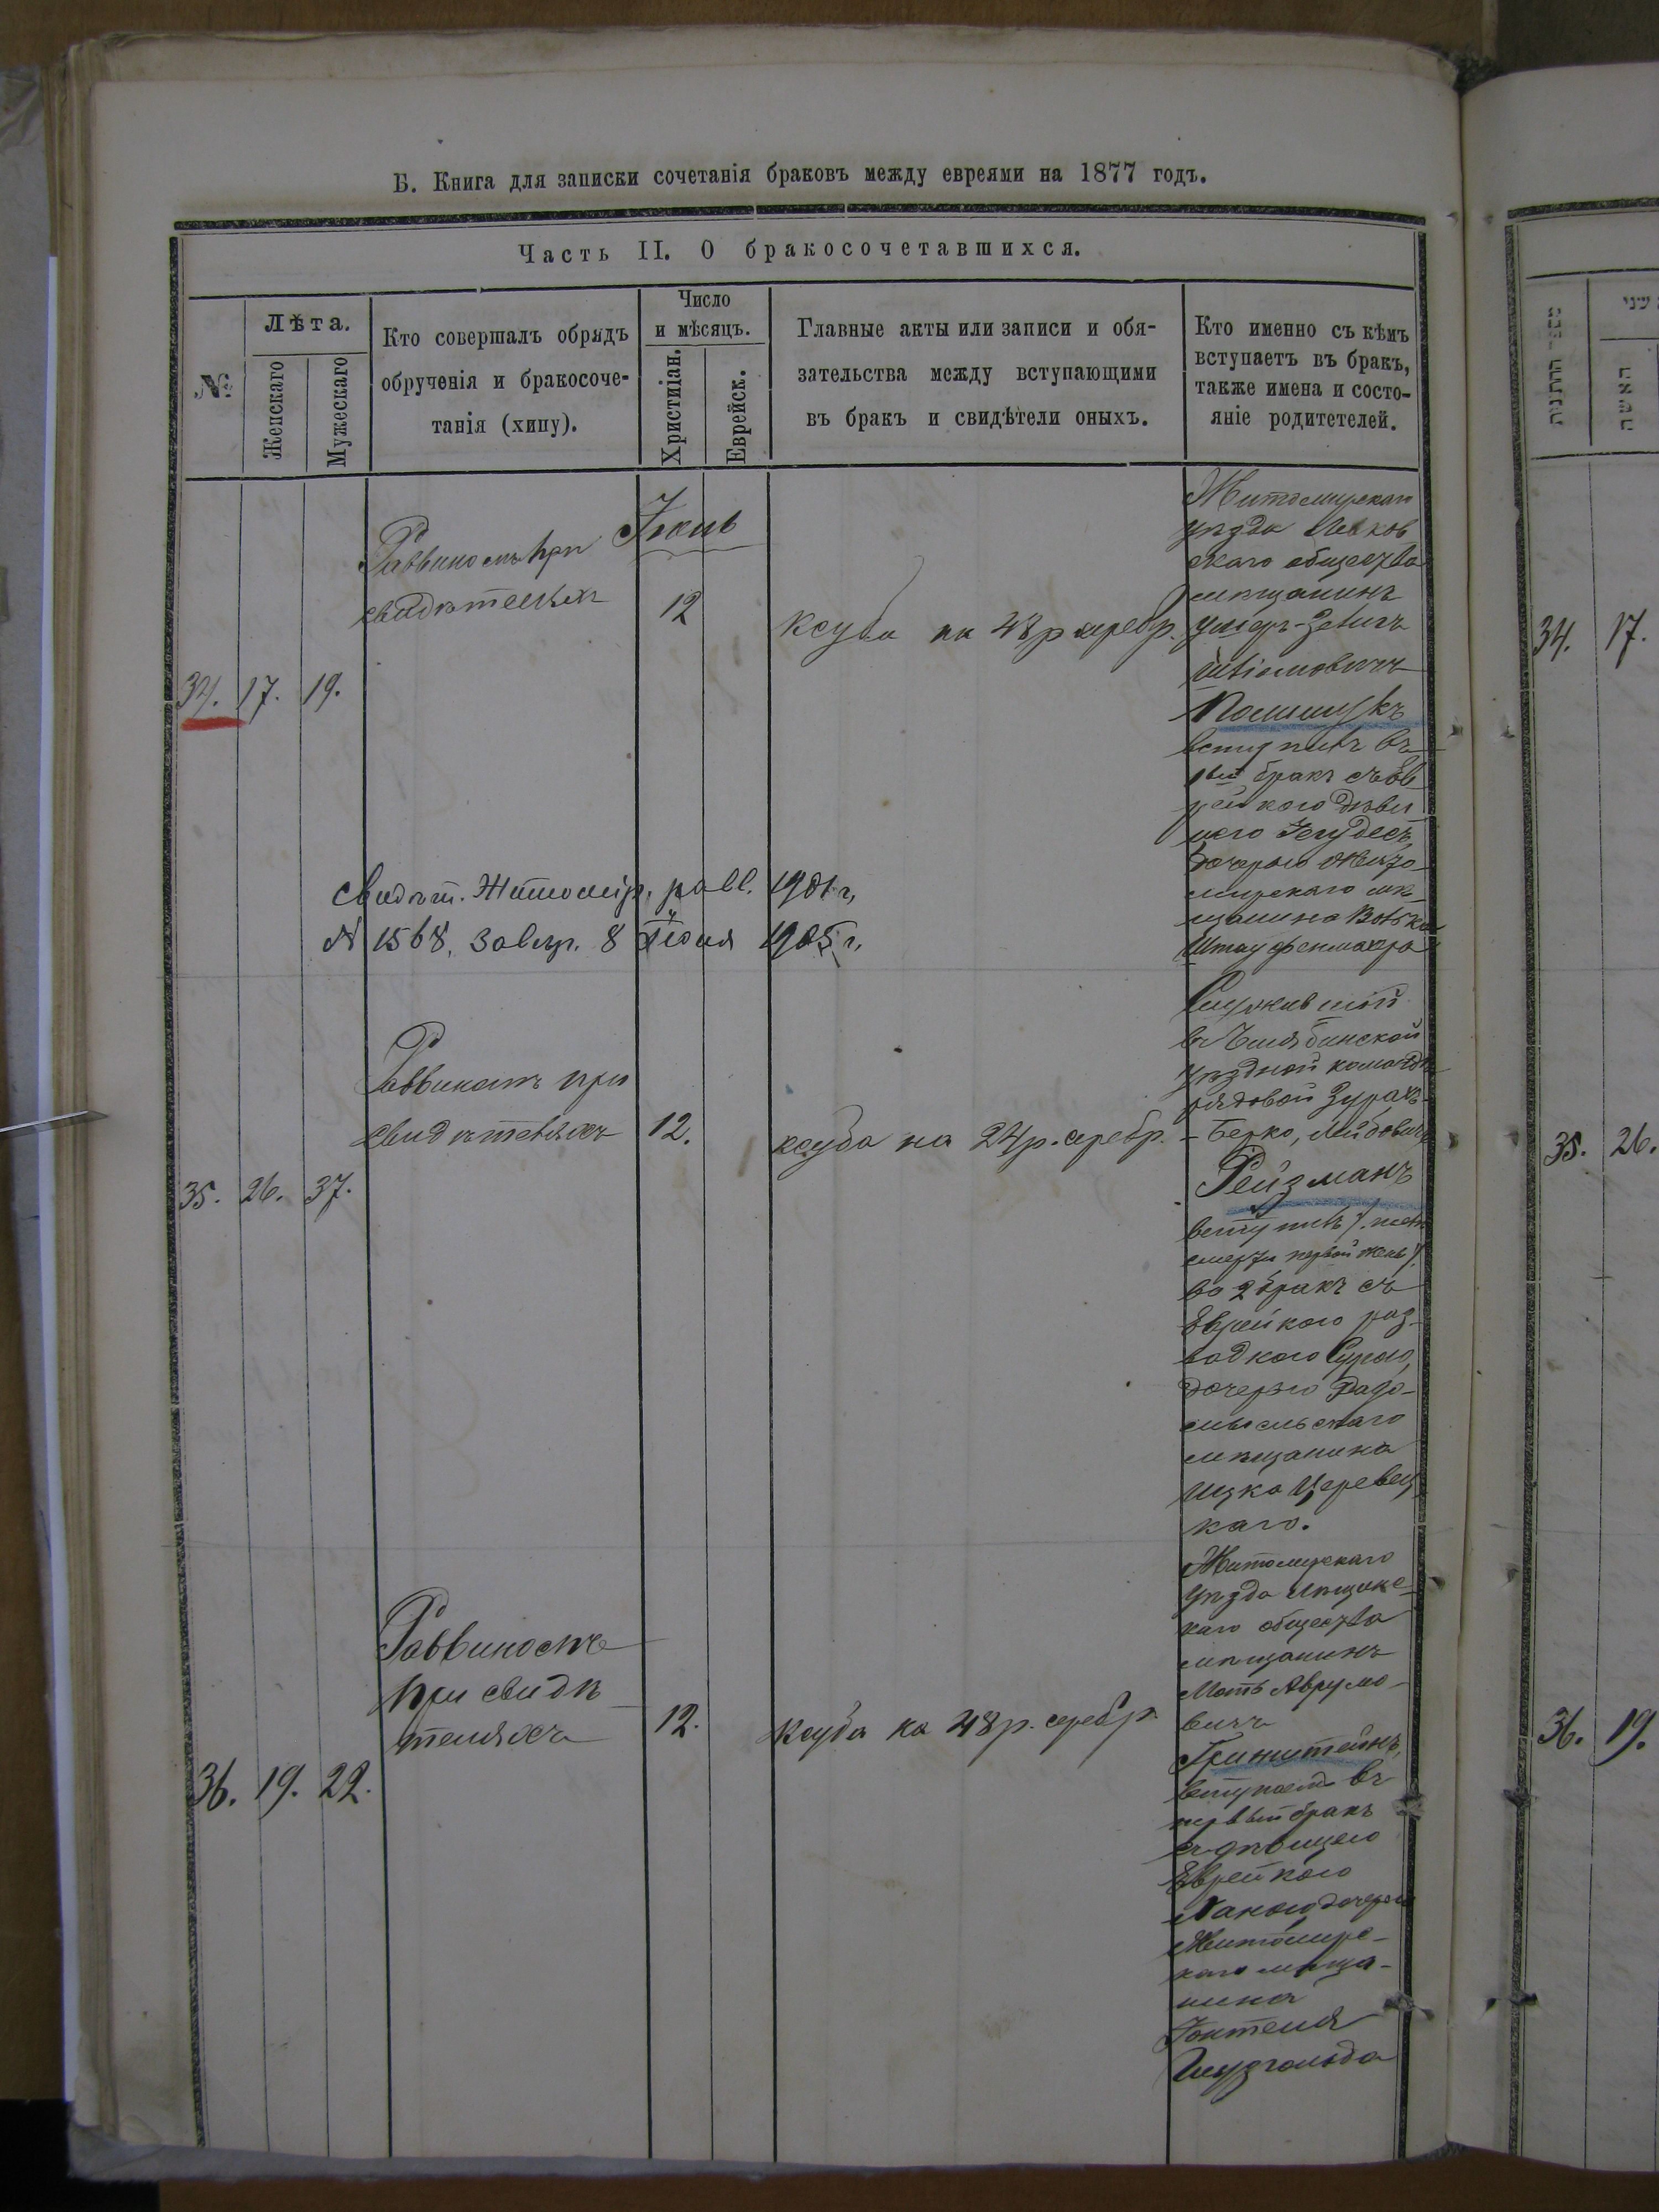 Б. Книга для записки сочетанія браковъ между евреями на 1877 годъ.
Часть II. О бракосочетавшихся.
№
Лѣта.
Женскаго
Мужескаго
Кто совершалъ обрядъ
обрученія и бракосоче-
танія (хипу).
Число
и мѣсяцъ.
Христиіан.
Еврейск.
Главные акты или записи и обя-
зательства между вступающими
въ бракъ и свидѣтели оныхъ.
Кто именно съ кѣмъ
вступаетъ въ бракъ,
также имена и состо-
яніе родитетелей.
34. 17. 19.
Раввиномъ при
свидѣтеляхъ
Іюнь
12
Ксуба на 48 р серебр.
Житомирскаго
уѣзда Левков
скаго общества
мѣщанинъ
вступилъ въ
1вый бракъ съ Ев
рейкою дѣви
цею
дочерью Жито
мирскаго мѣ
щанина
Свидѣт. Житомір. равв. 1901 г,
№ 1568. 8 Іюня 1905 г,
35. 26. 37.
Раввинамъ при
свидѣтеляхъ
12.
ксуба на 24 р. серебр.
Служившій
въ Челябинской
уѣздной командѣ
рядовой Зурахъ
- Берко, Лейбовичъ
Рейзманъ
вступилъ /. послѣ
смерти первой жены /.
во 2 бракъ съ
Еврейкою раз-
водкою Сурою,
дочерью Радо-
мысльскаго
мѣщанина
Ицка Церевец
каго.
36. 19. 22.
Раввиномъ
при свидѣ
теляхъ
12.
Ксуба на 48 р. серебр.
Житомирскаго
Уѣзда
каго общества
мѣщанинъ
Моть Аврумо-
вичъ
Гринштейнъ,
вступаетъ въ
первый бракъ
съ дѣвицею
Еврейкою
Ханою дочерью
Житомирс-
каго мѣща-
нина
34. 17.
35. 26.
36. 19.
האשה